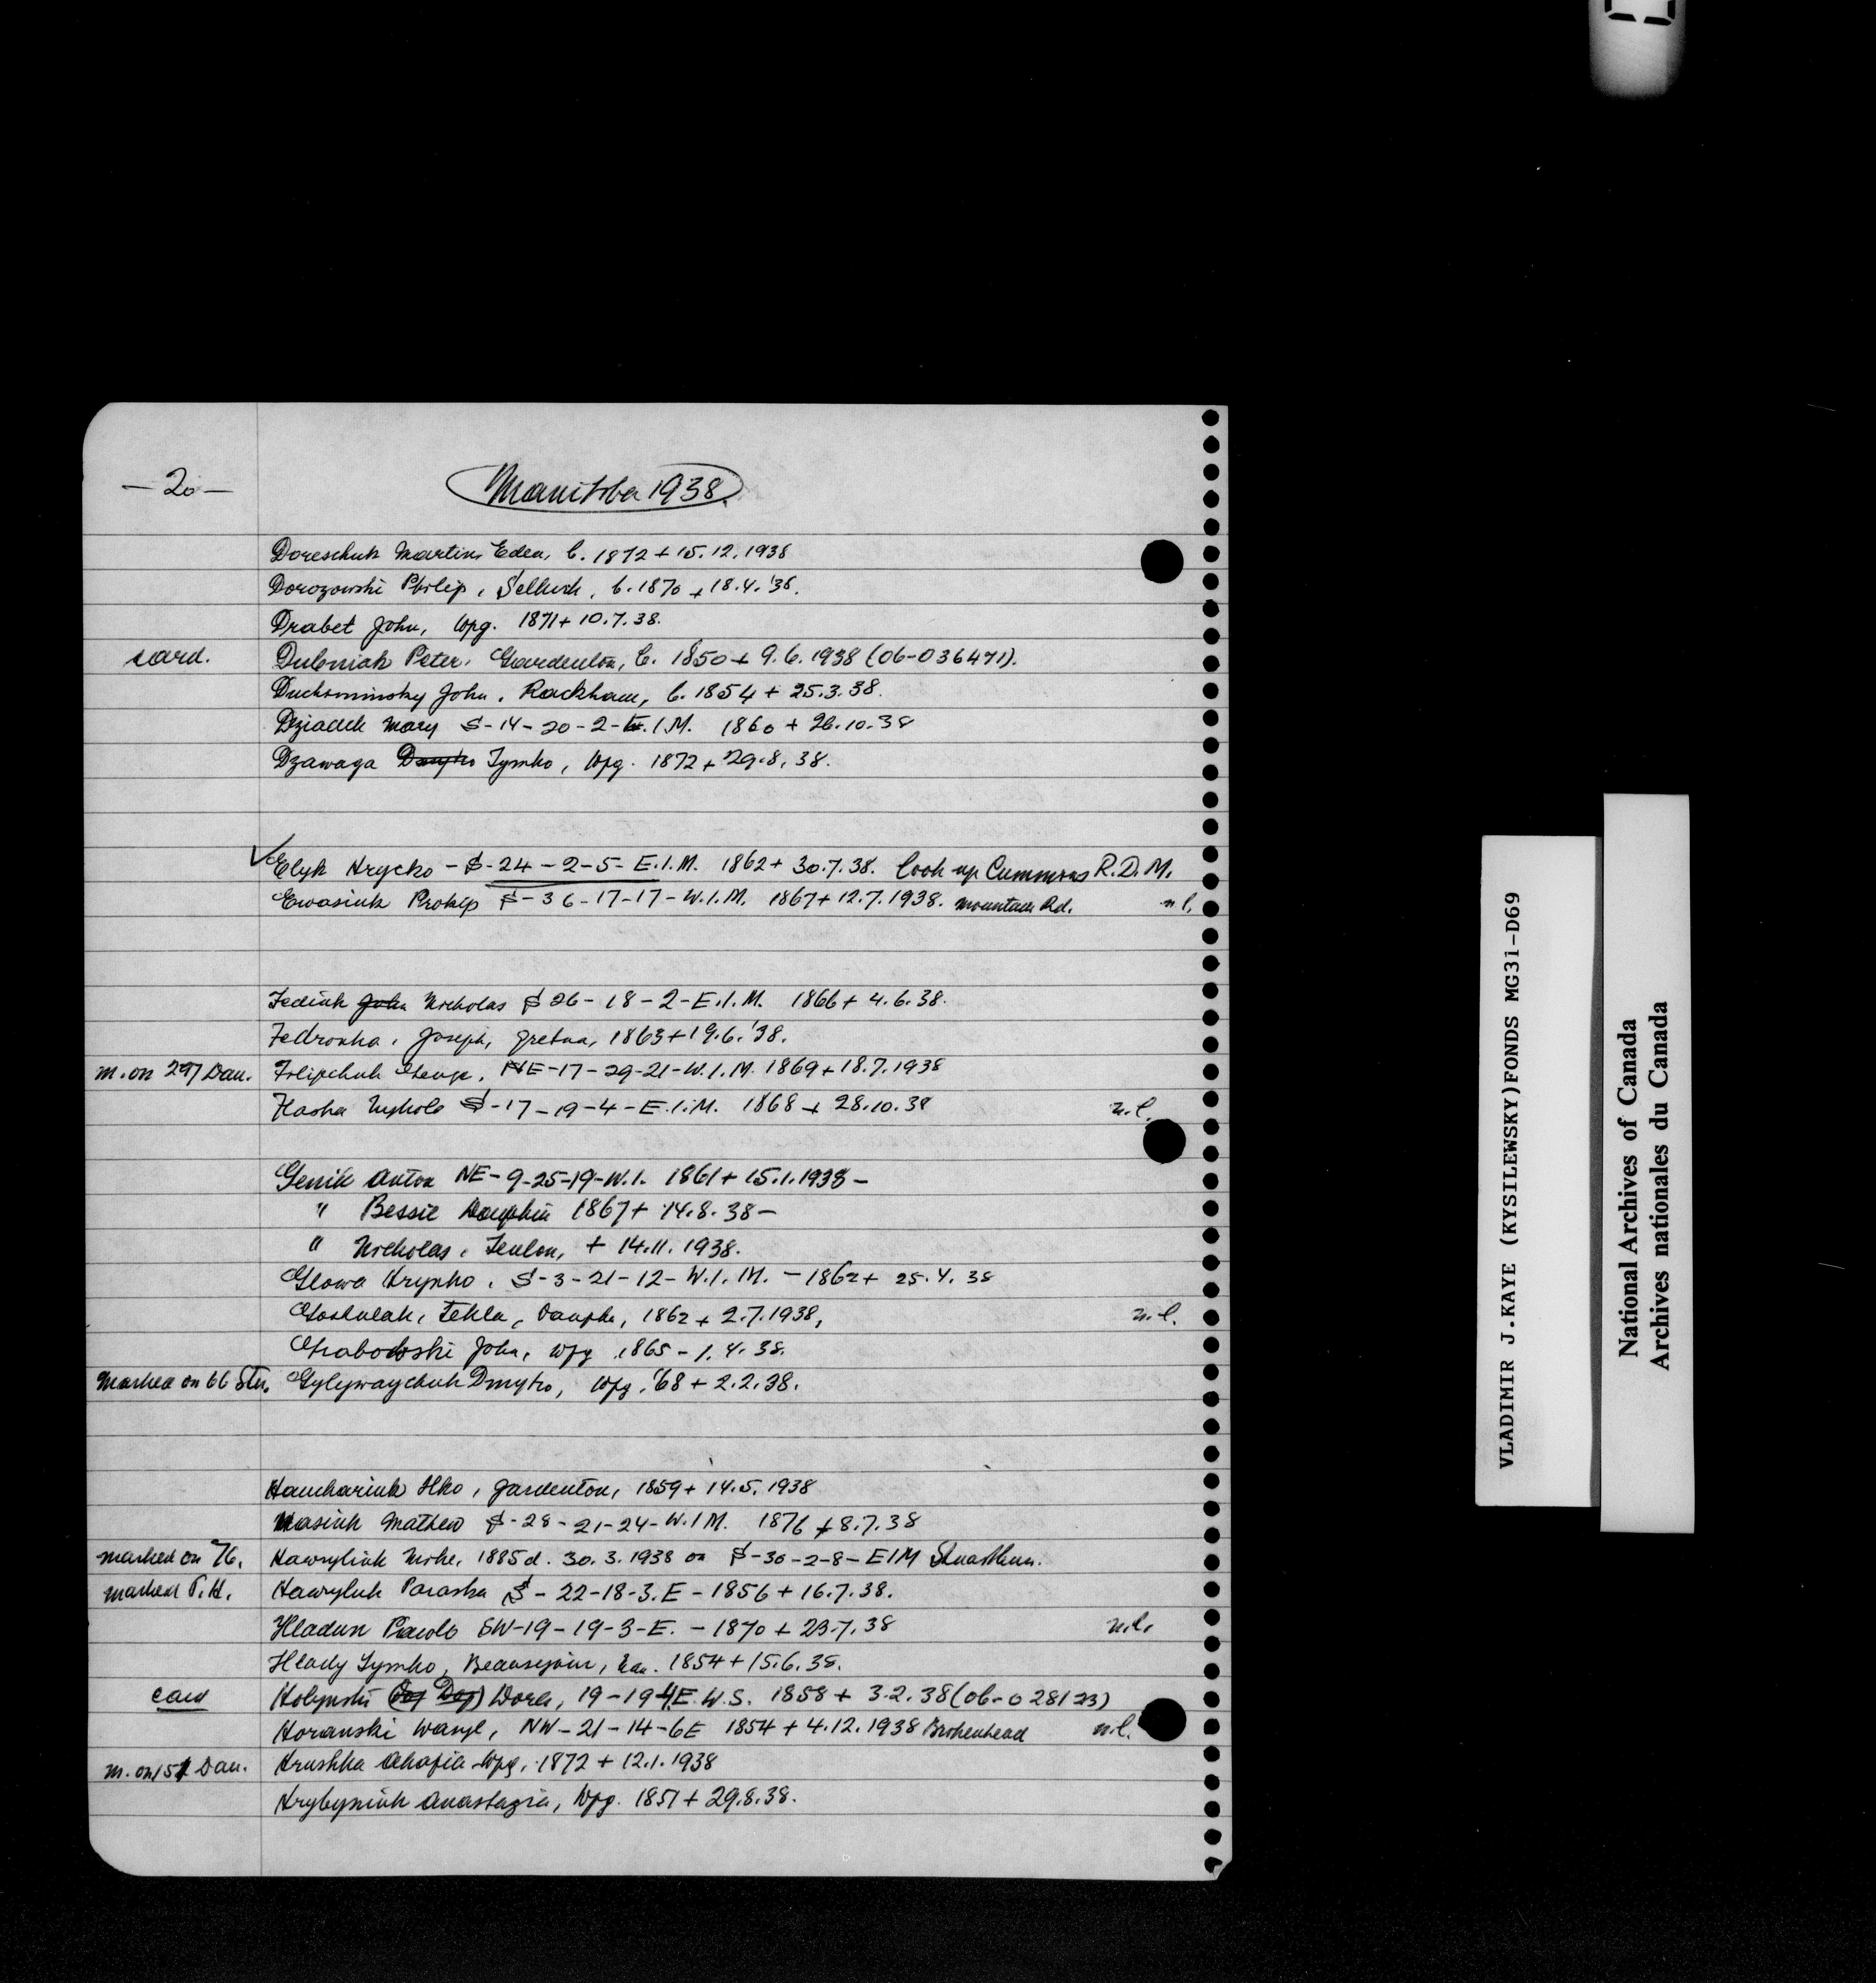 — 20 —
Manitoba 1938.
Doreschuk Martin, Eden, b. 1872 + 15.12.1938
Dorozowski Philip, Selkirk, b. 1870 + 18.4.'38.
Drabet John, Wpg. 1871 + 10.7.38.
card. Dubniak Peter, Gardenton, b. 1850 + 9.6.1938 (06-036471).
John, Rackham, b. 1854 + 25.3.38.
Dziadek Mary S-14-20-2-E.1M. 1860 + 26.10.38
Dzawaga Dmytro Tymko, Wpg. 1872 + 29.8.38.
✓ Elyk Hrycko - S-24-2-5-E.1.M. 1862 + 30.7.38. look up Cummins R.D.M.
Ewasiuk Prokip S-36-17-17-W.1.M. 1867 + 12.7.1938. Mountain Rd. n.l.
Fediuk John Nicholas S 26-18-2-E.1.M. 1866 + 4.6.38.
Joseph, Gretna, 1863 + 19.6.'38.
m. on 297 Dau. Filipchuk George, NE-17-29-21-W.1.M. 1869 + 18.7.1938
Flasha Nykola S-17-19-4-E.1.M. 1868 + 28.10.38 n.l.
Genik Anton NE-9-25-19-W.1. 1861 + 15.1.1938 -
" Bessie Dauphin 1867 + 14.8.38 -
" Nicholas, Teulon, + 14.11.1938.
Glowa Hrynko, S-3-21-12-W.1.M. - 1862 + 25.4.38
Tekla, Dauphin, 1862 + 2.7.1938, n.l.
Grabowski John, Wpg 1865 - 1.4.38.
Marked on 66 Stu. Gylywaychuk Dmytro, Wpg. '68 + 2.2.38.
Hanchariuk Ilko, Gardenton, 1859 + 14.5.1938
Mathew S-28-21-24-W.1M. 1876 + 8.7.38
marked on 76. Hawryliuk Mike, 1885 d. 30.3.1938 on S-30-2-8-E1M Stuartburn.
marked P.H. Hawryluk Paraska S-22-18-3.E - 1856 + 16.7.38.
Hladun Pawlo SW-19-19-3-E. - 1870 + 23.7.38 n.l.
Hlady Tymko, Beausejour, Man. 1854 + 15.6.38.
card Holynski Dorko, 19-19-4E.W.S. 1858 + 3.2.38 (06-028123)
Horanski Wasyl, NW-21-14-6E 1854 + 4.12.1938 Brokenhead n.l.
m. on 151 Dau. Hrushka Ahafia Wpg. 1872 + 12.1.1938
Hrybyniuk Anastazia, Wpg. 1851 + 29.8.38.
VLADIMIR J.KAYE (KYSILEWSKY)FONDS MG31-D69
National Archives of Canada
Archives nationales du Canada